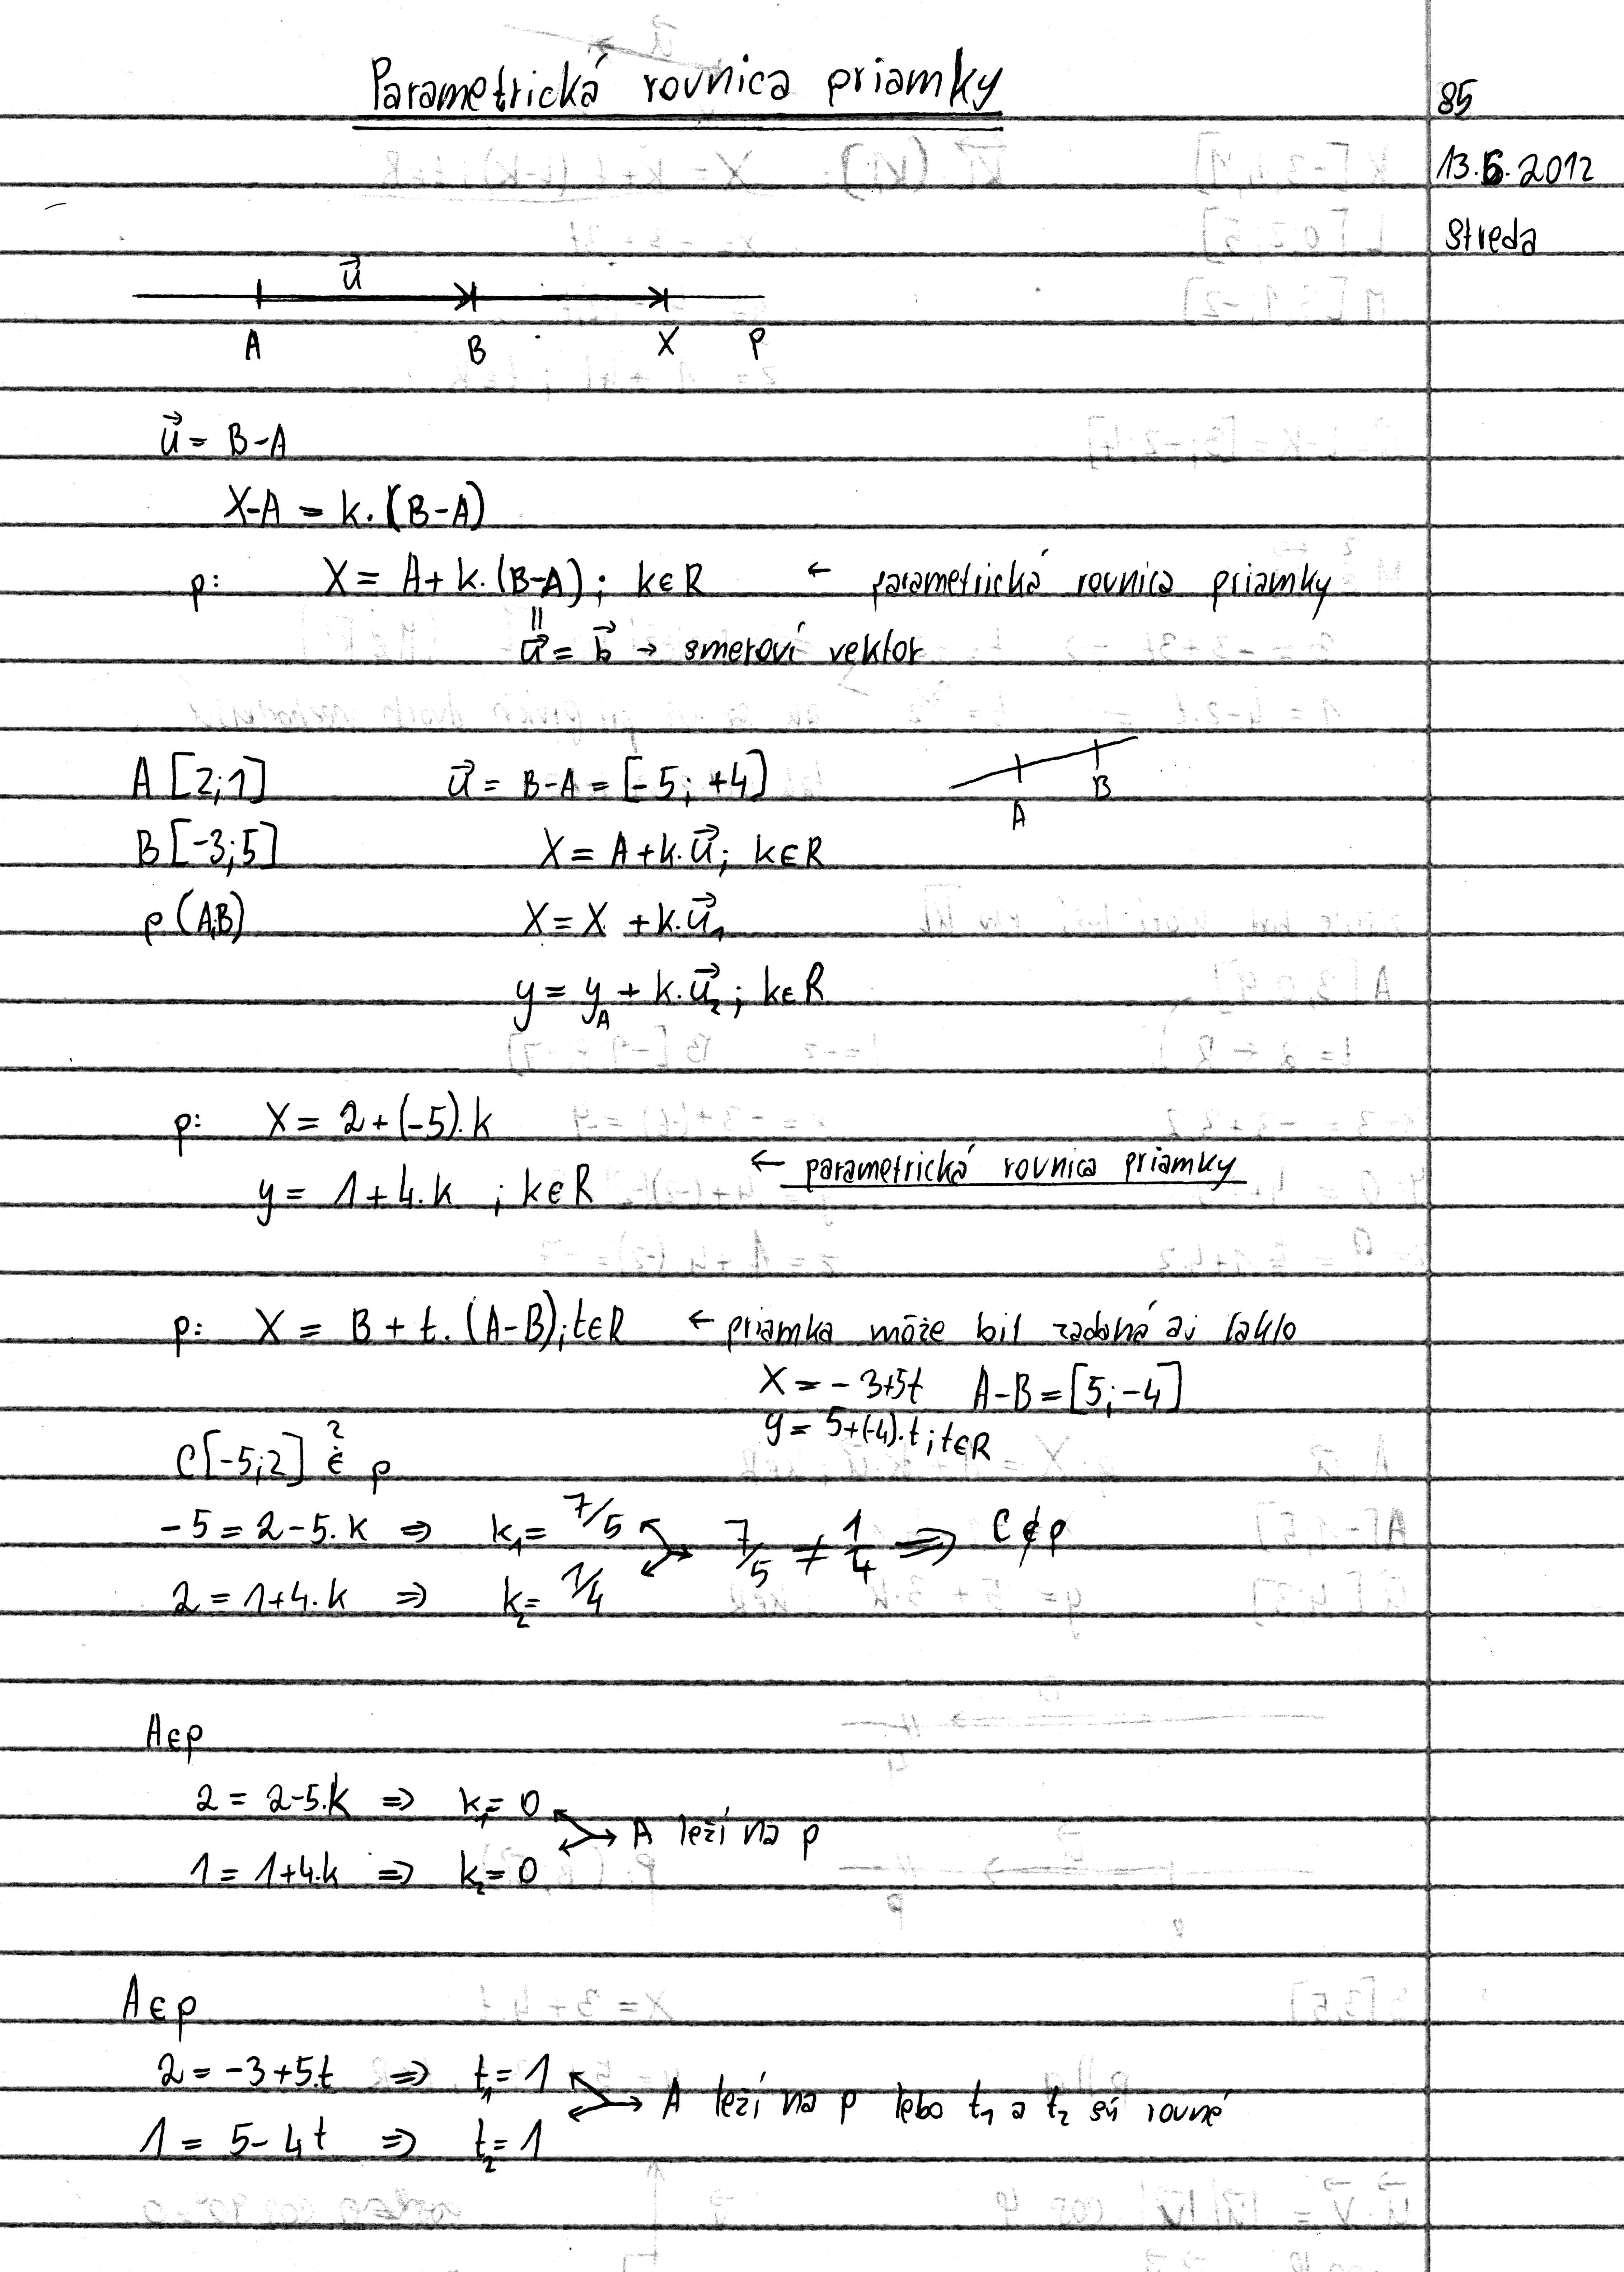 Parametrická rovnica priamky
85
13.6.2012
Streda
u⃗
A B X P
u⃗ = B-A
X-A = k.(B-A)
p: X = A+k.(B-A); k∈R ← parametrická rovnica priamky
||
u⃗ = b⃗ → smeroví vektor
A[2;1] u⃗ = B-A = [-5; +4]
A B
B[-3;5] X = A+k.u⃗; k∈R
p(A,B) X = X + k.u⃗₁
y = y_A + k.u⃗₂; k∈R
p: X = 2+(-5).k
y = 1+4.k ; k∈R ← parametrická rovnica priamky
p: X = B + t.(A-B); t∈R ← priamka môže bit zadaná aj takto
X = -3+5t A-B = [5;-4]
y = 5+(-4).t; t∈R
C[-5;2] ∈? p
-5 = 2-5.k ⇒ k₁= 7/5 7/5 ≠ 1/4 ⇒ C∉p
2 = 1+4.k ⇒ k₂= 1/4
A∈p
2 = 2-5.k ⇒ k₁= 0
A leží na p
1 = 1+4.k ⇒ k₂= 0
A∈p
2 = -3+5.t ⇒ t₁= 1
A leží na p lebo t₁ a t₂ sú rovné
1 = 5-4t ⇒ t₂= 1